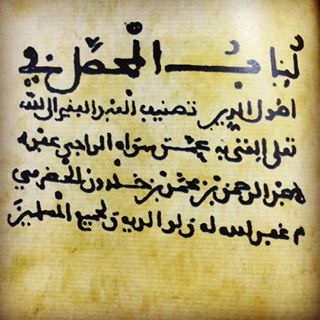 لباب المحصل في
اصول الدين تصنيف العبد الفقير الى الله
تعلى الغنى به عمن سواه الراجي عفوه
عبد الرحمن بن محمد بن خلدون الحضرمي
غفر الله له ولوالديه ولجميع المسلمين